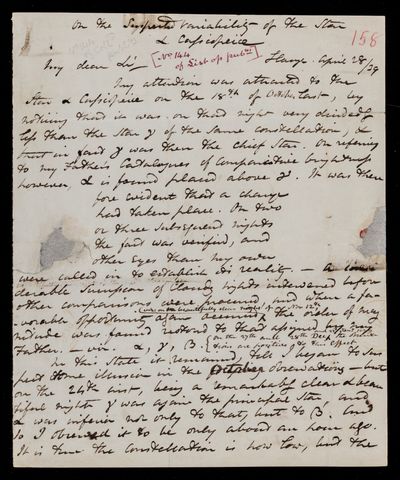 On the Suspected variability of the Star
α Cassiopeiæ
158
My dear Sir
No 144
of List of publns
Slough. April 28/39
My attention was attracted to the
Star α Cassiopeiæ on the 18th of October last, by
noticing that it was on that night very decidedly
less than the Star γ of the same constellation, &
that in fact γ was then the chief Star. On referring
to my Father's Catalogues of Comparative brightness
however, α is found placed above γ. It was there
fore evident that a change
had taken place. On two
or three subsequent nights
the fact was verified, and
other Eyes than my own
were called in to establish its reality. — A consi-
derable succession of cloudy nights intervened before
other comparisons were procured, and when a fa-
vorable opportunity again occurred, the order of mag
nitude was found restored to that assigned by my
Father. — viz. α, γ, β.
In this state it remained, till I began to sus
pect some illusion in the October observations — but
on the 24th inst, being a remarkably clear & beau
tiful night γ was again the principal Star, and
α was inferior not only to that, but to β. And
so I observed it to be only about an hour ago.
It is true the constellation is now low, and the